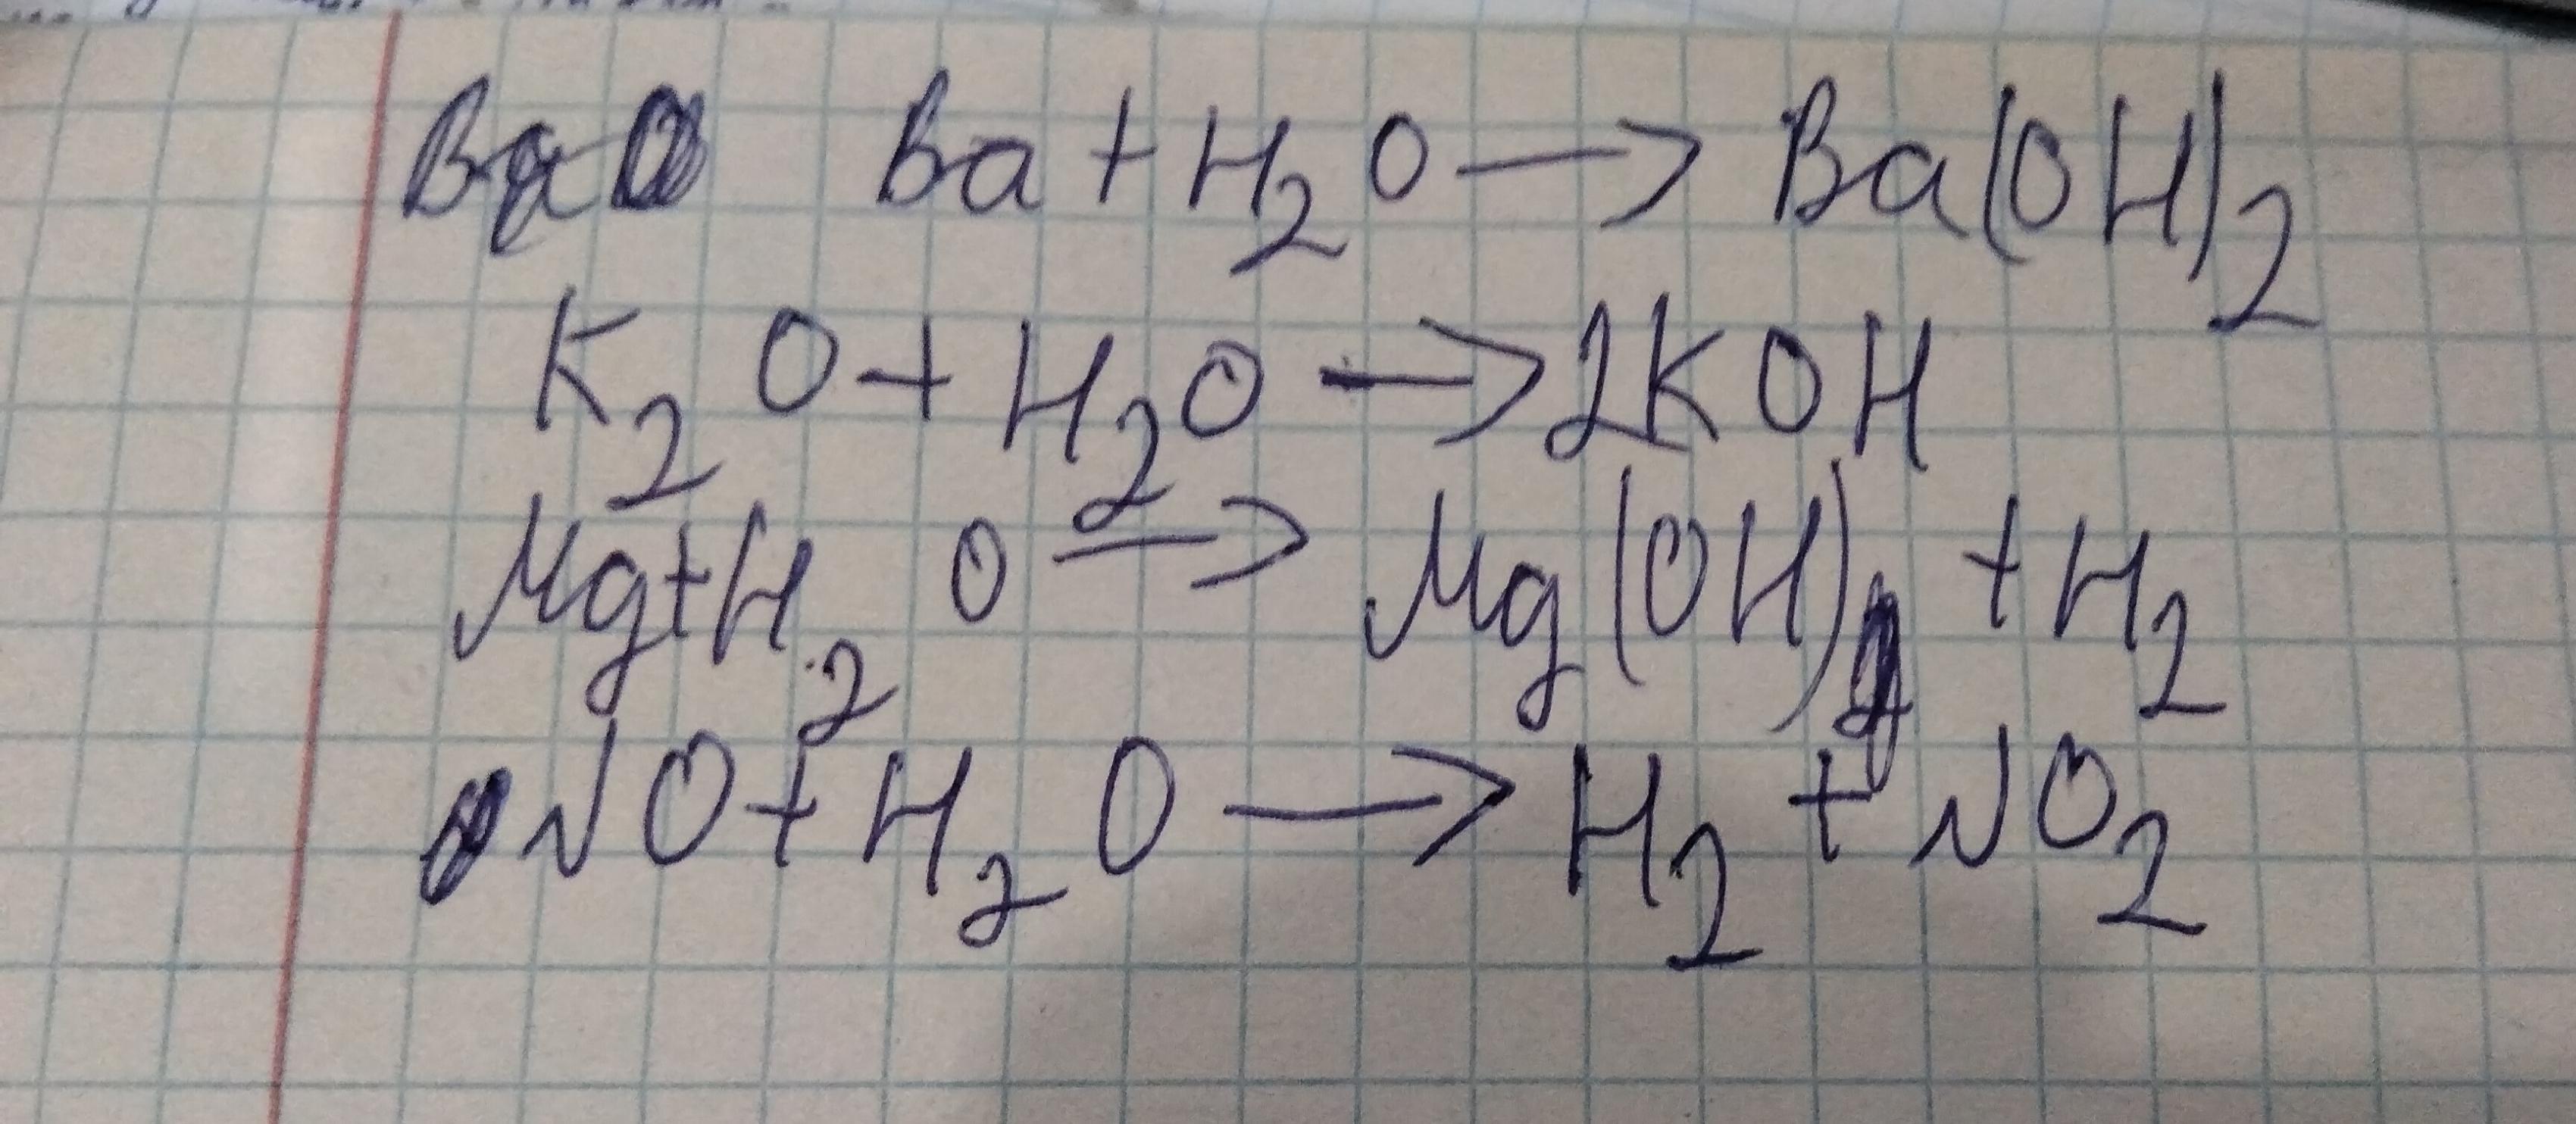 Ba Ba + H₂O → Ba(OH)₂
K₂O + H₂O → 2KOH
Mg + H₂O → Mg(OH)₂ + H₂
NO + H₂O → H₂ + NO₂